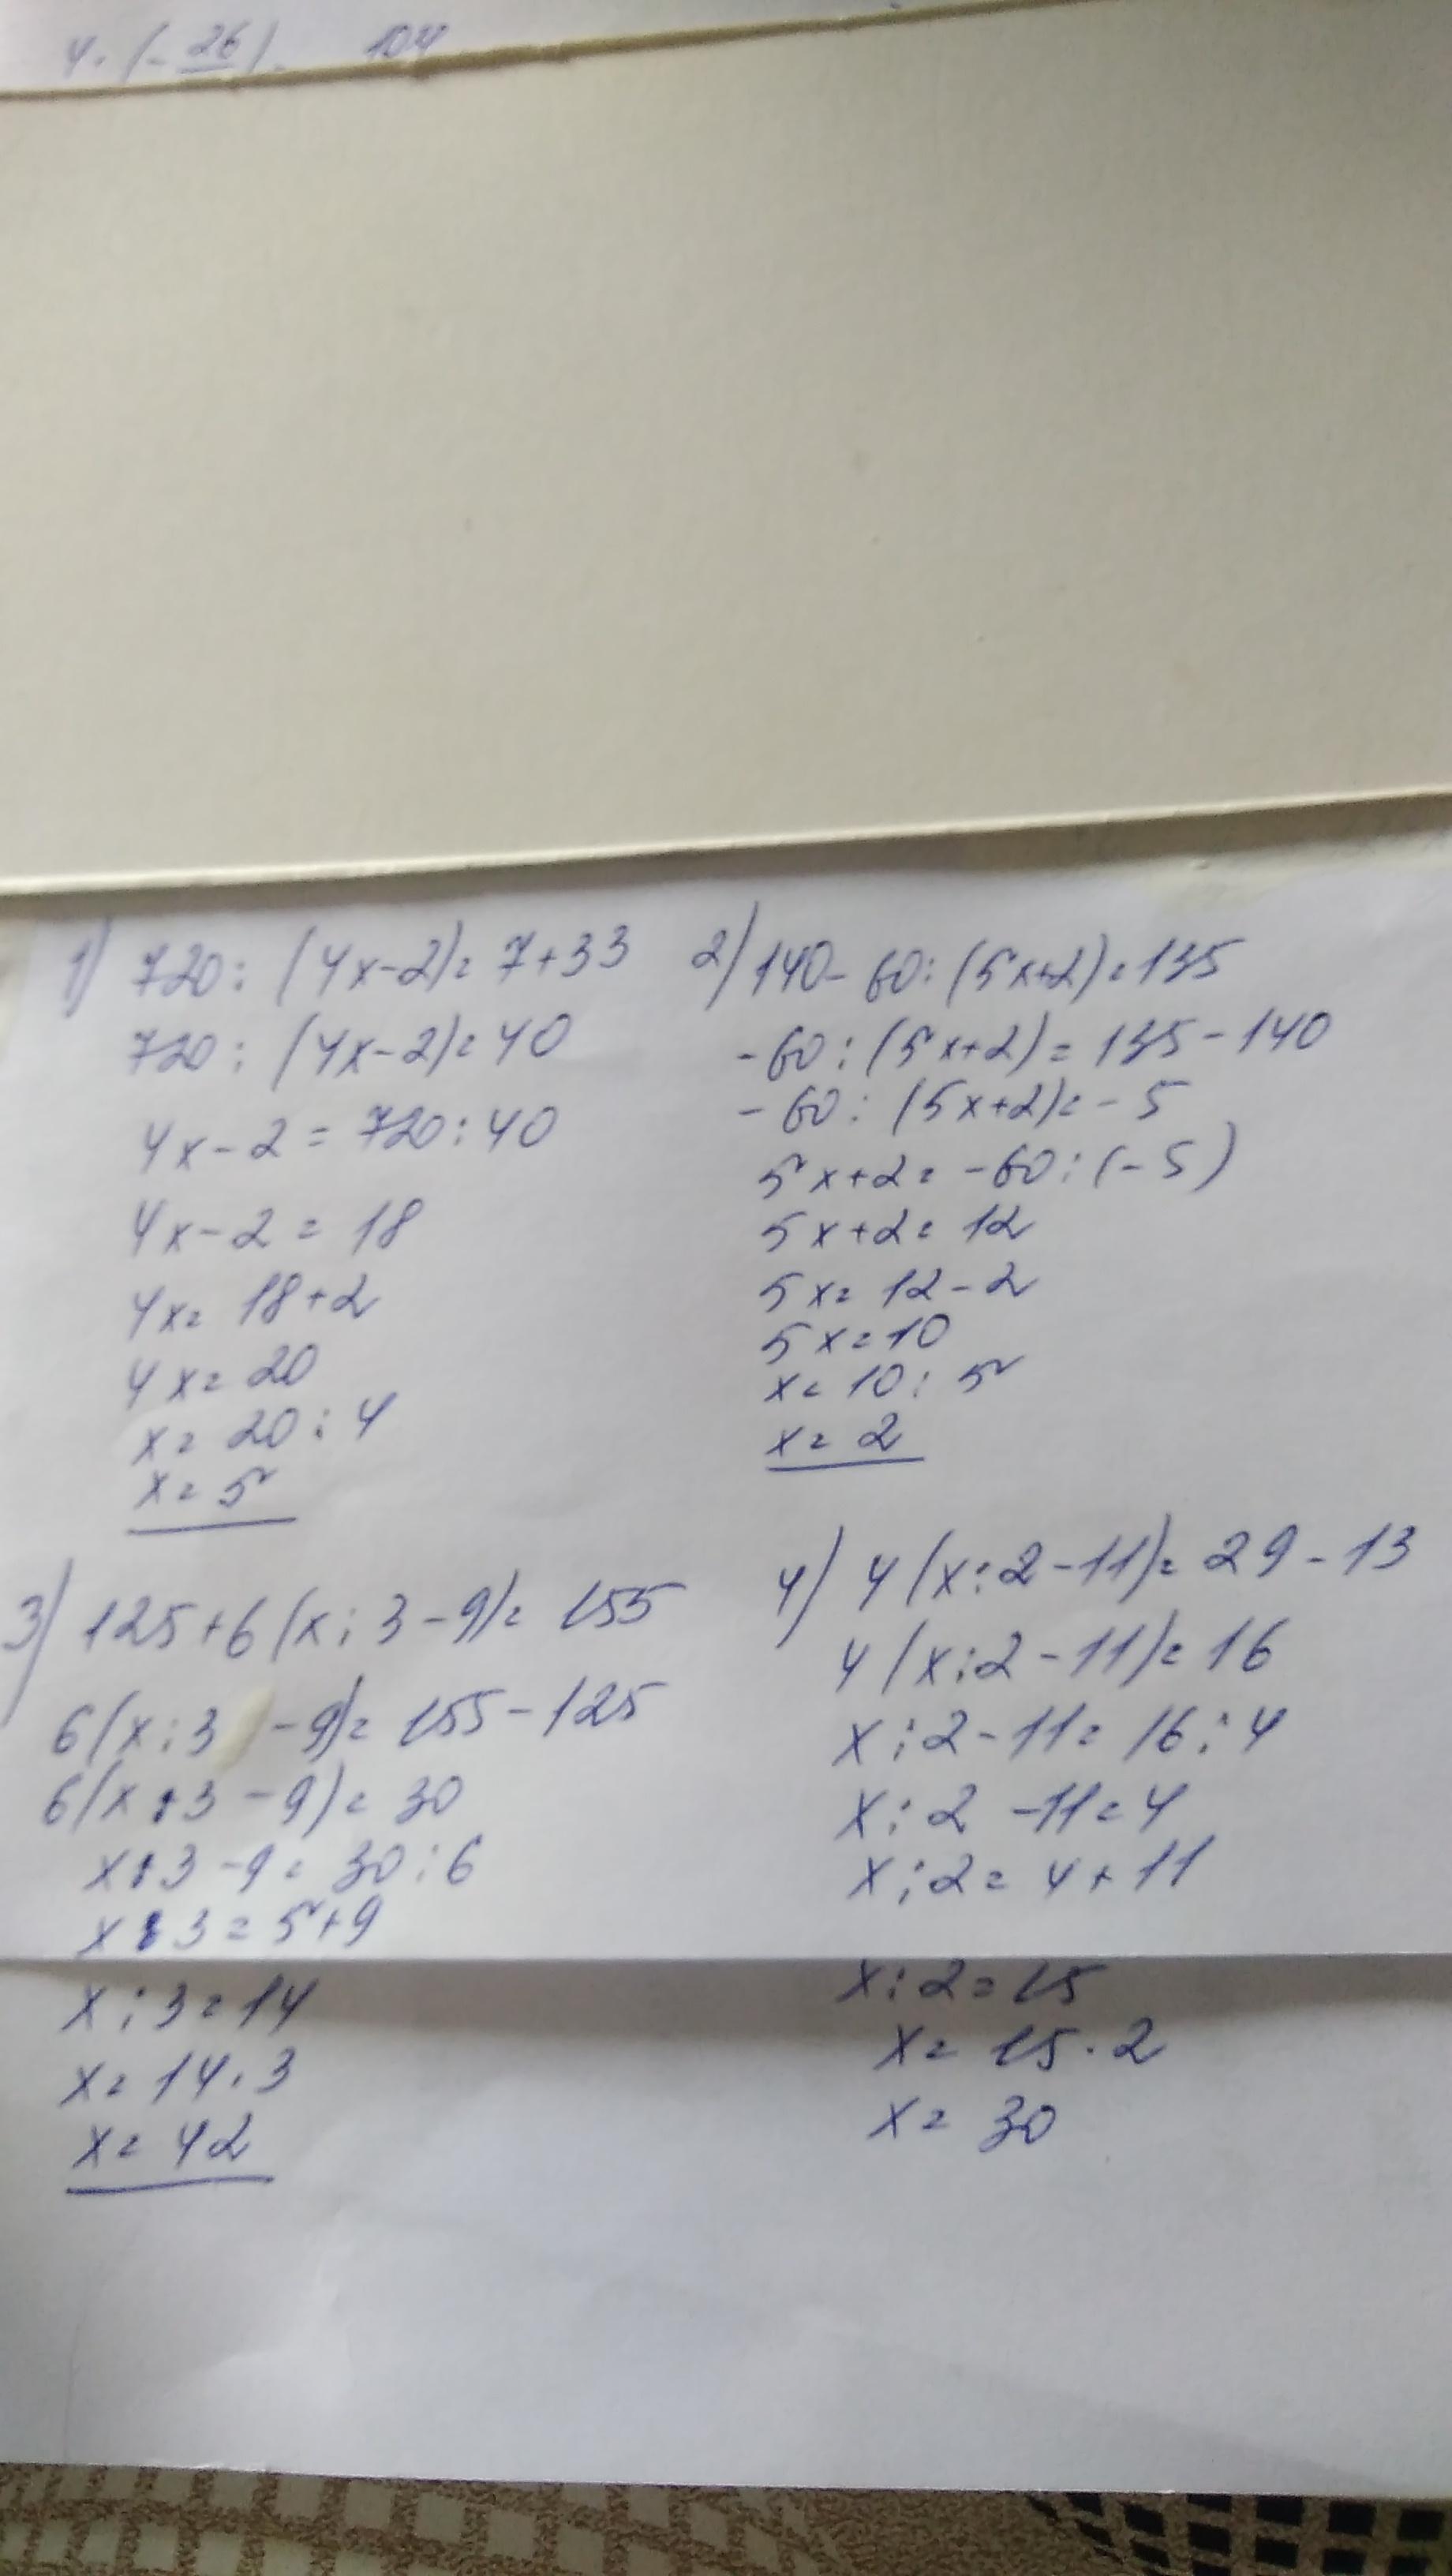 4·(-26) 104
1) 720:(4x-2)=7+33
720:(4x-2)=40
4x-2=720:40
4x-2=18
4x=18+2
4x=20
x=20:4
x=5
2) 140-60:(5x+2)=135
-60:(5x+2)=135-140
-60:(5x+2)=-5
5x+2=-60:(-5)
5x+2=12
5x=12-2
5x=10
x=10:5
x=2
3) 125+6(x:3-9)=155
6(x:3-9)=155-125
6(x:3-9)=30
x:3-9=30:6
x:3=5+9
x:3=14
x=14·3
x=42
4) 4(x:2-11)=29-13
4(x:2-11)=16
x:2-11=16:4
x:2-11=4
x:2=4+11
x:2=15
x=15·2
x=30